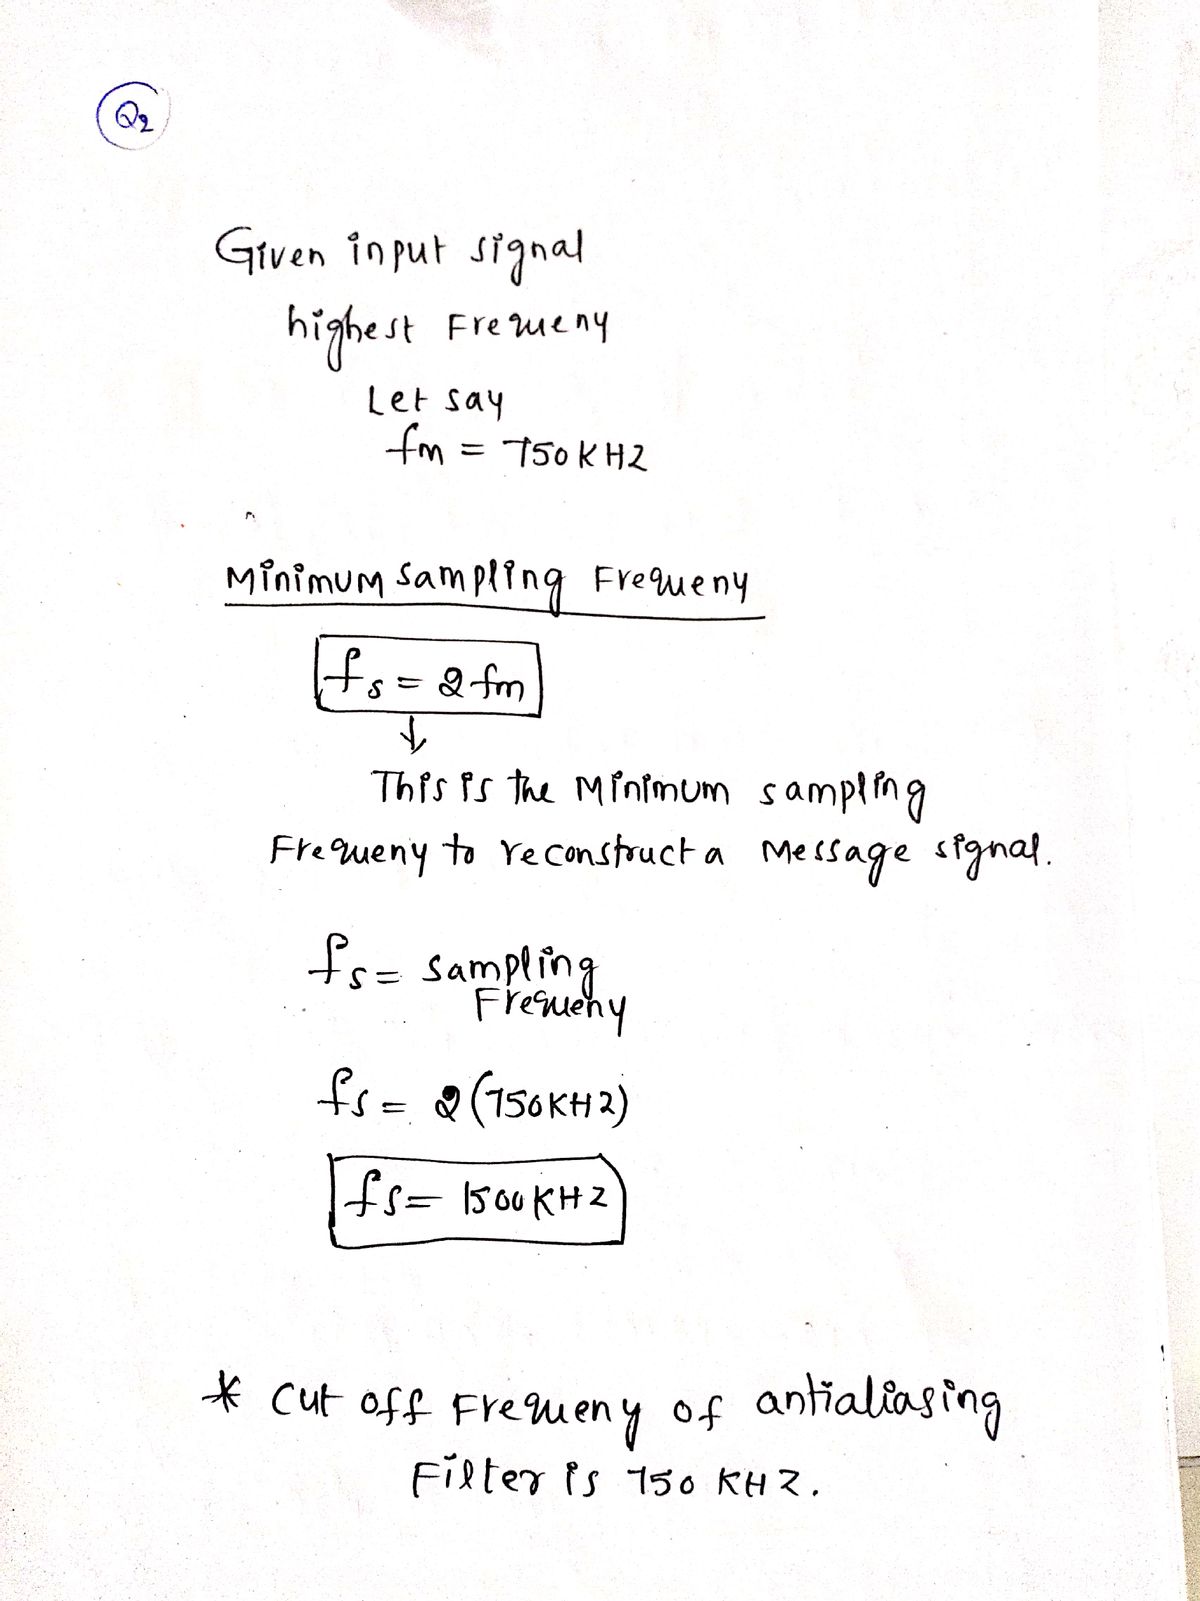 Q2
Given input signal
highest Frequeny
Let say
fm = 750KHZ
Minimum sampling Frequeny
fs = 2fm
↓
This is the Minimum sampling
Frequeny to reconstruct a Message signal.
fs = sampling
Frequeny
fs = 2(750KHZ)
fs = 1500KHZ
* Cut off Frequeny of antialiasing
Filter is 750 KHZ.